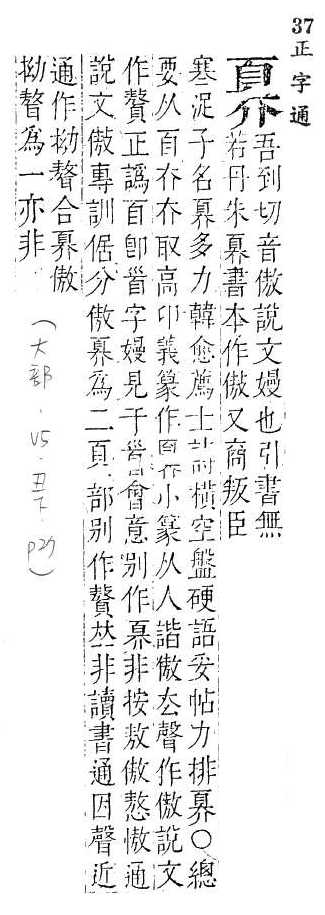 37
正字通
奡
吾到切音傲說文嫚也引書無
若丹朱奡書本作傲又商叛臣
寒浞子名奡多力韓愈薦士詩橫空盤硬語妥帖力排奡○總
要从百夰夰取高卬義篆作小篆从人諧傲厺聲作傲說文
作正譌百卽𩠐字嫚見于𩠐會意別作奡非按敖傲慠通
說文傲專訓倨分傲奡為二頁部別作𠀤非讀書通因聲近
通作拗聱合奡傲
拗聱為一亦非
(大部.V5.丑下.p27)